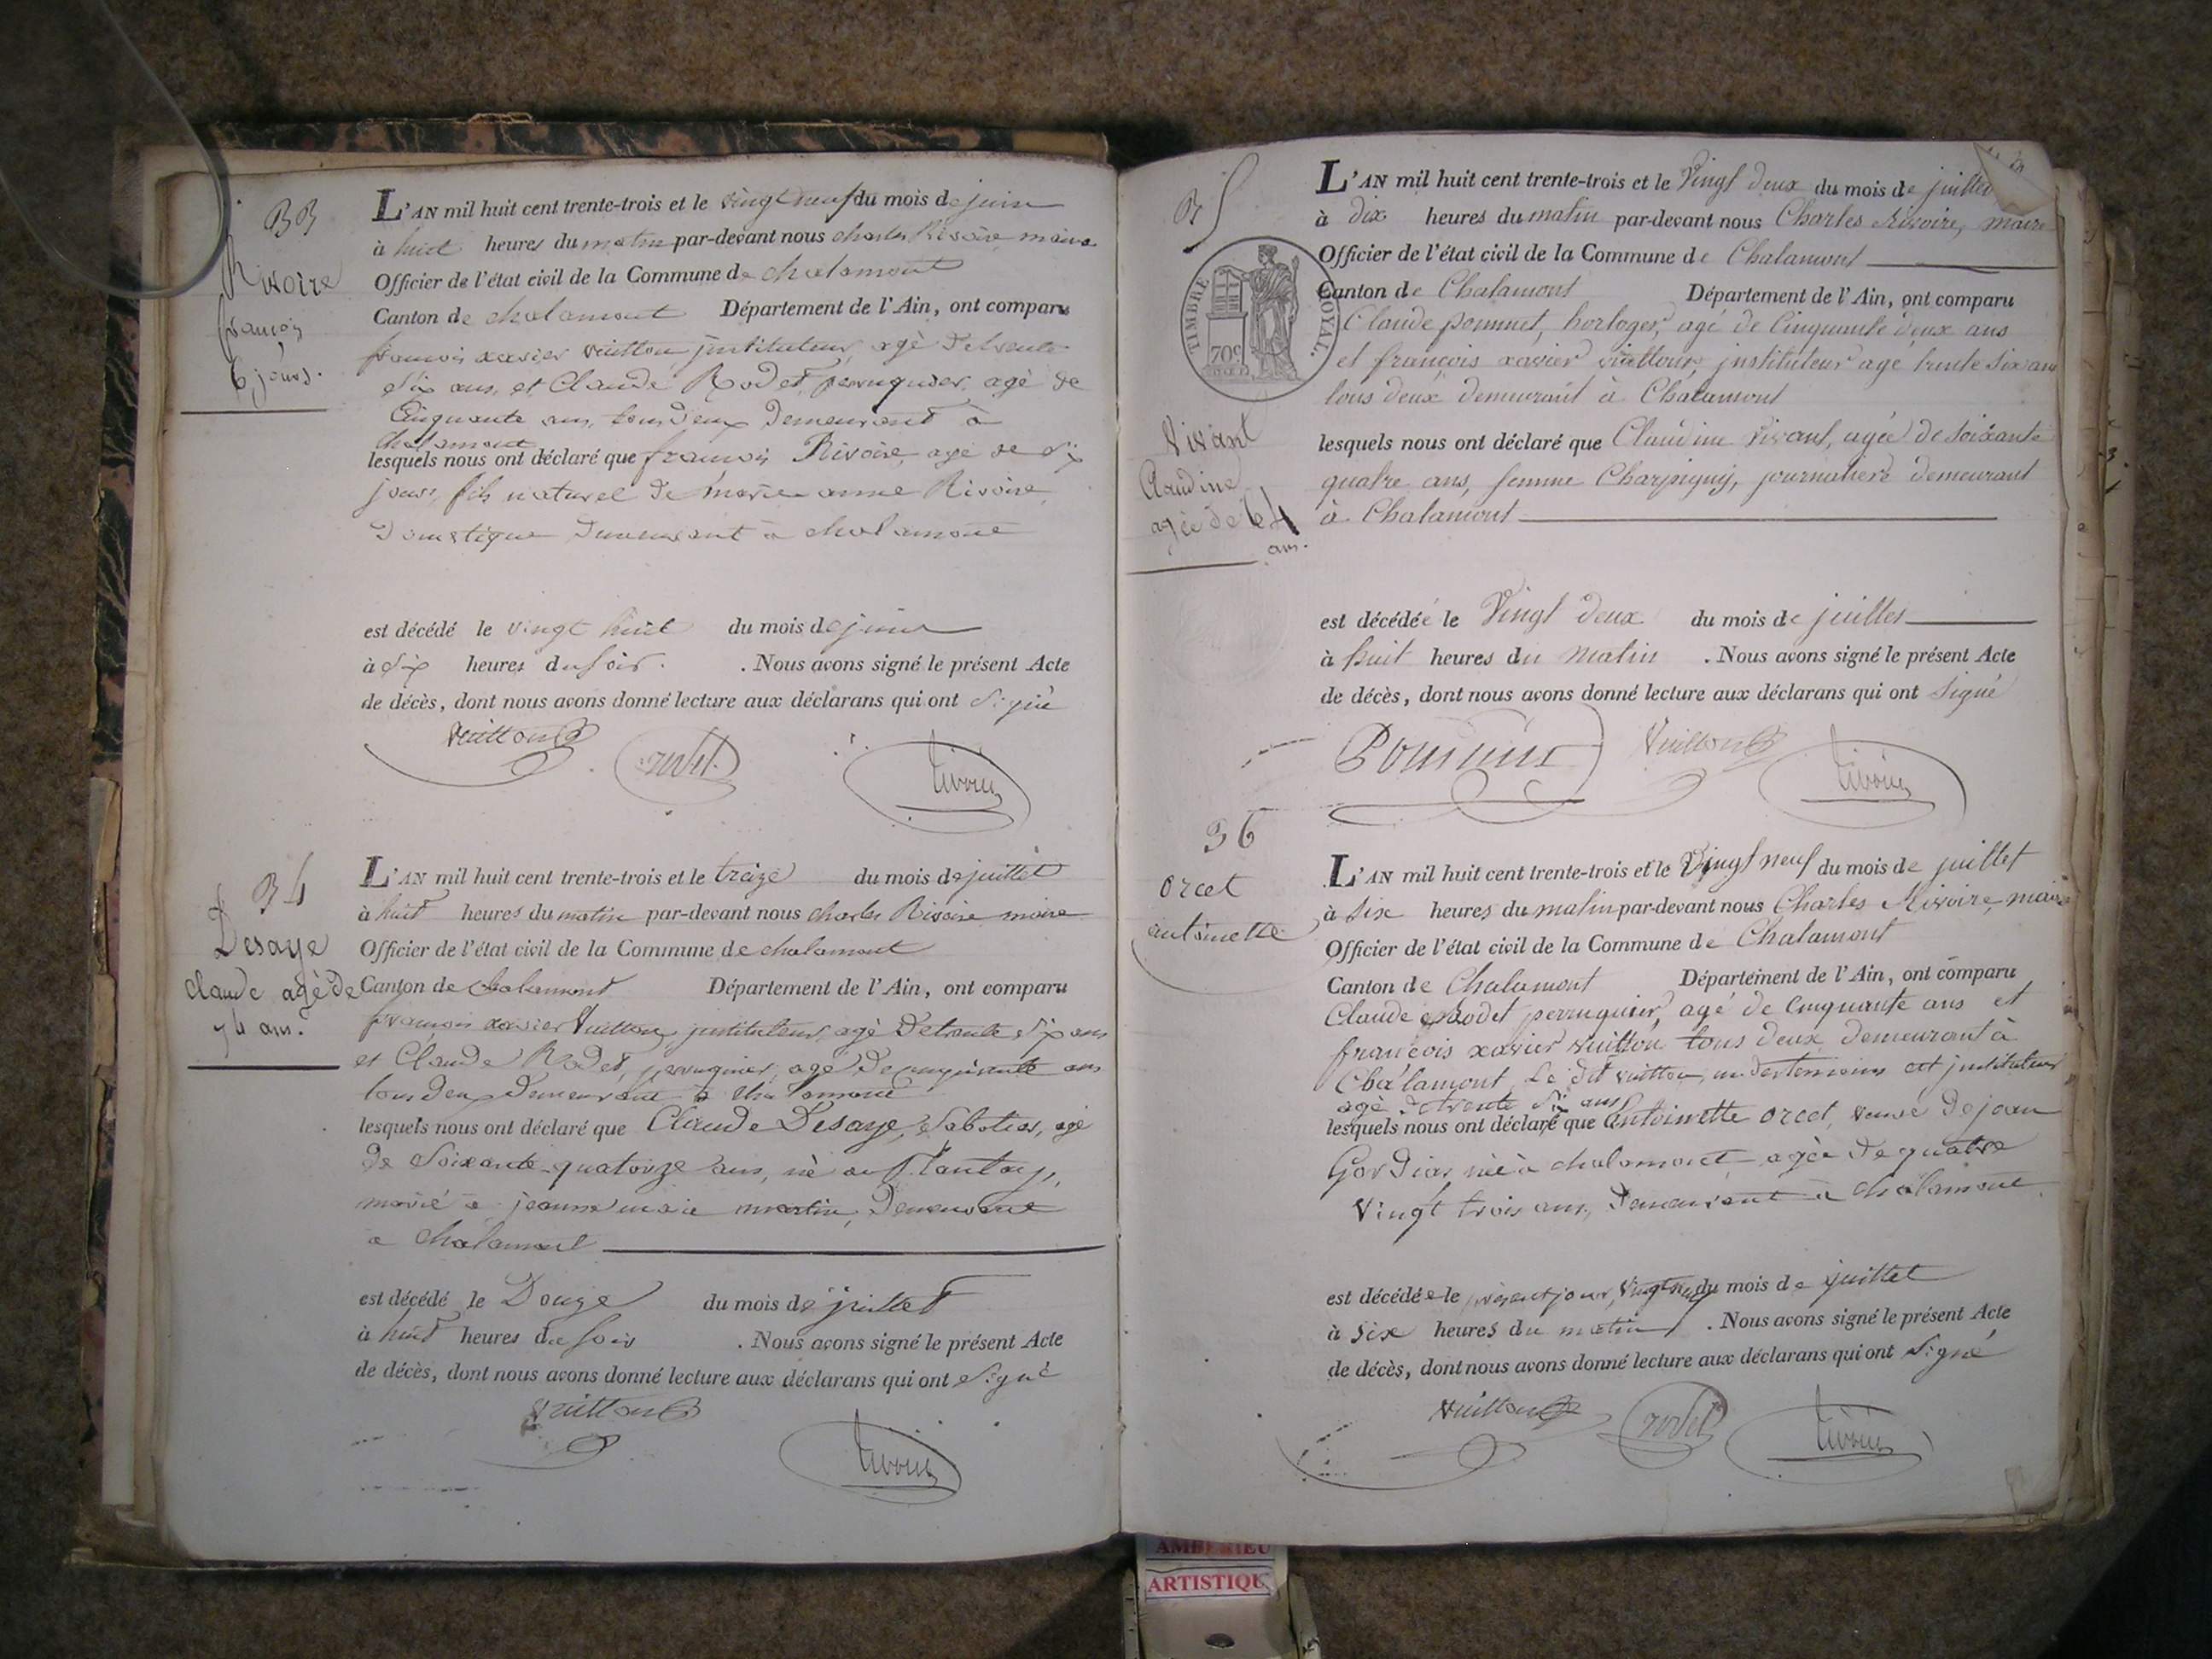 33
Rivoire
françois
6 jours.
L'AN mil huit cent trente-trois et le vingt neuf du mois de juin
à huit heures du matin par-devant nous charles Rivoire maire
Officier de l'état civil de la Commune de chalamont
Canton de chalamont Département de l'Ain, ont comparu
francois xavier vuitton instituteur, agé de trente
six ans, et Claude Rodet, perruquier, agé de
Cinquante ans, tous deux demeurant à
chalamont
lesquels nous ont déclaré que francois Rivoire, agé de six
jours, fils naturel de marie anne Rivoire,
Domestique demeurant à chalamont
est décédé le vingt huit du mois de juin
à six heures du soir. . Nous avons signé le présent Acte
de décès, dont nous avons donné lecture aux déclarans qui ont signé
Vuitton
rodet
Rivoire
34
Desaye
claude agé de
74 ans.
L'AN mil huit cent trente-trois et le treize du mois de juillet
à huit heures du matin par-devant nous charles Rivoire maire
Officier de l'état civil de la Commune de chalamont
Canton de Chalamont Département de l'Ain, ont comparu
francois xavier Vuitton, instituteur, agé de trente six ans
et Claude Rodet, perruquier, agé de cinquante ans
tous deux demeurant à chalamont
lesquels nous ont déclaré que Claude Desaye, Sabotier, agé
de Soixante-quatorze ans, né au Plantay,
marié à jeanne marie martin, Demeurant
a chalamont
est décédé le Douze du mois de juillet
à huit heures du soir . Nous avons signé le présent Acte
de décès, dont nous avons donné lecture aux déclarans qui ont signé
Vuitton
Rivoire
35
TIMBRE ROYAL.
70c
Vivant
Claudine
agée de 64
ans.
L'AN mil huit cent trente-trois et le Vingt deux du mois de juillet
à dix heures du matin par-devant nous Charles Rivoire, maire
Officier de l'état civil de la Commune de Chalamont
Canton de Chalamont Département de l'Ain, ont comparu
Claude pommet, horloger, agé de Cinquante deux ans
et françois xavier vuitton, instituteur agé trente six ans
tous deux demeurant à Chalamont
lesquels nous ont déclaré que Claudine Vivant, agée de soixante
quatre ans, femme Charpigny, journaliere demeurant
à Chalamont
est décédée le Vingt deux du mois de juillet
à huit heures du matin . Nous avons signé le présent Acte
de décès, dont nous avons donné lecture aux déclarans qui ont signé
Vuitton
Rivoire
36
orcet
antoinette
L'AN mil huit cent trente-trois et le Vingt neuf du mois de juillet
à six heures du matin par-devant nous Charles Rivoire, maire
Officier de l'état civil de la Commune de Chalamont
Canton de Chalamont Département de l'Ain, ont comparu
Claude Rodet perruquier, agé de Cinquante ans et
françois xavier vuitton tous deux demeurant à
Chalamont, Le dit vuitton, un des temoins est instituteur
agé de trente six ans
lesquels nous ont déclaré que antoinette orcet, veuve de jean
Gordiar, née à chalamont agée de quatre
Vingt trois ans, Demeurant à chalamont
est décédée le présent jour, vingt neuf du mois de juillet
à six heures du matin . Nous avons signé le présent Acte
de décès, dont nous avons donné lecture aux déclarans qui ont signé
Vuitton
rodet
Rivoire
AMBERIEU
ARTISTIQU